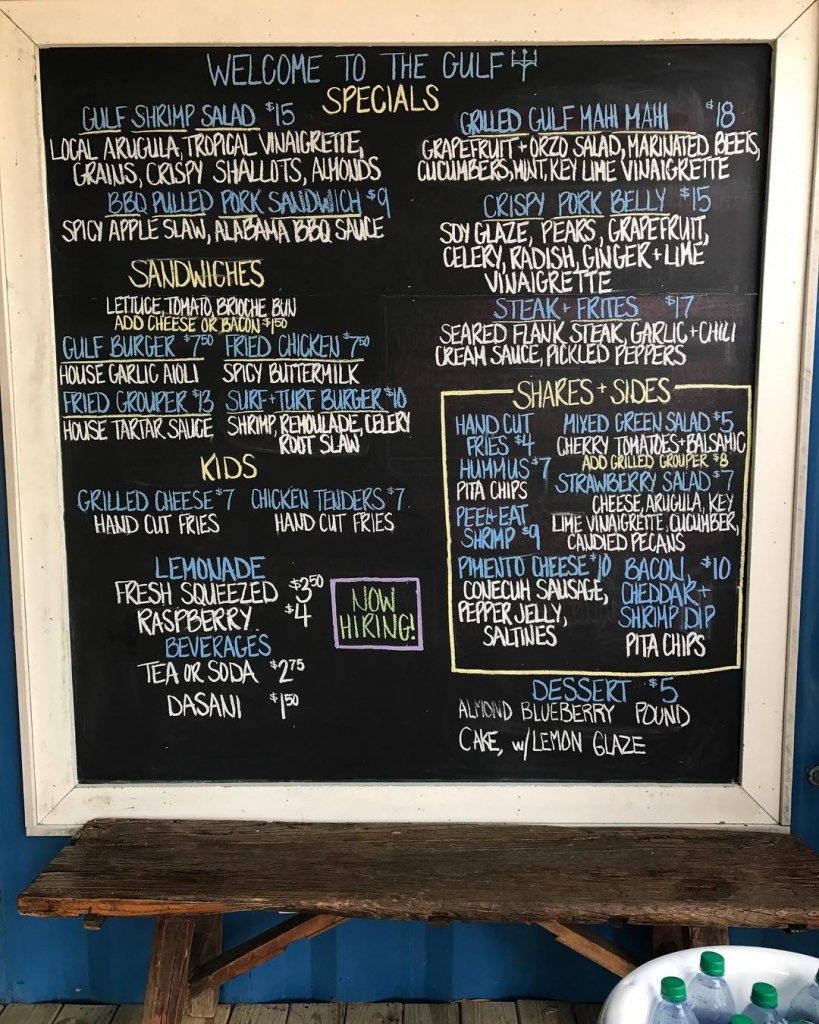 WELCOME TO THE GULF
SPECIALS
GULF SHRIMP SALAD $15
LOCAL ARUGULA, TROPICAL VINAIGRETTE,
GRAINS, CRISPY SHALLOTS, ALMONDS
BBQ PULLED PORK SANDWICH $9
SPICY APPLE SLAW, ALABAMA BBQ SAUCE
GRILLED GULF MAHI MAHI $18
GRAPEFRUIT + ORZO SALAD, MARINATED BEETS,
CUCUMBERS, MINT, KEY LIME VINAIGRETTE
CRISPY PORK BELLY $15
SOY GLAZE, PEARS, GRAPEFRUIT,
CELERY, RADISH, GINGER + LIME
VINAIGRETTE
STEAK + FRITES $17
SEARED FLANK STEAK, GARLIC + CHILI
CREAM SAUCE, PICKLED PEPPERS
SANDWICHES
LETTUCE, TOMATO, BRIOCHE BUN
ADD CHEESE OR BACON $1.50
GULF BURGER $7.50
HOUSE GARLIC AIOLI
FRIED CHICKEN $7.50
SPICY BUTTERMILK
FRIED GROUPER $13
HOUSE TARTAR SAUCE
SURF + TURF BURGER $10
SHRIMP, REMOULADE, CELERY
ROOT SLAW
KIDS
GRILLED CHEESE $7
HAND CUT FRIES
CHICKEN TENDERS $7
HAND CUT FRIES
LEMONADE
FRESH SQUEEZED $3.50
RASPBERRY $4
BEVERAGES
TEA OR SODA $2.75
DASANI $1.50
NOW
HIRING!
SHARES + SIDES
HAND CUT
FRIES $4
HUMMUS $7
PITA CHIPS
PEEL + EAT
SHRIMP $9
MIXED GREEN SALAD $5
CHERRY TOMATOES + BALSAMIC
ADD GRILLED GROUPER $8
STRAWBERRY SALAD $7
CHEESE, ARUGULA, KEY
LIME VINAIGRETTE, CUCUMBER,
CANDIED PECANS
PIMENTO CHEESE $10
CONECUH SAUSAGE,
PEPPER JELLY,
SALTINES
BACON, $10
CHEDDAR +
SHRIMP DIP
PITA CHIPS
DESSERT $5
ALMOND BLUEBERRY POUND
CAKE, w/ LEMON GLAZE